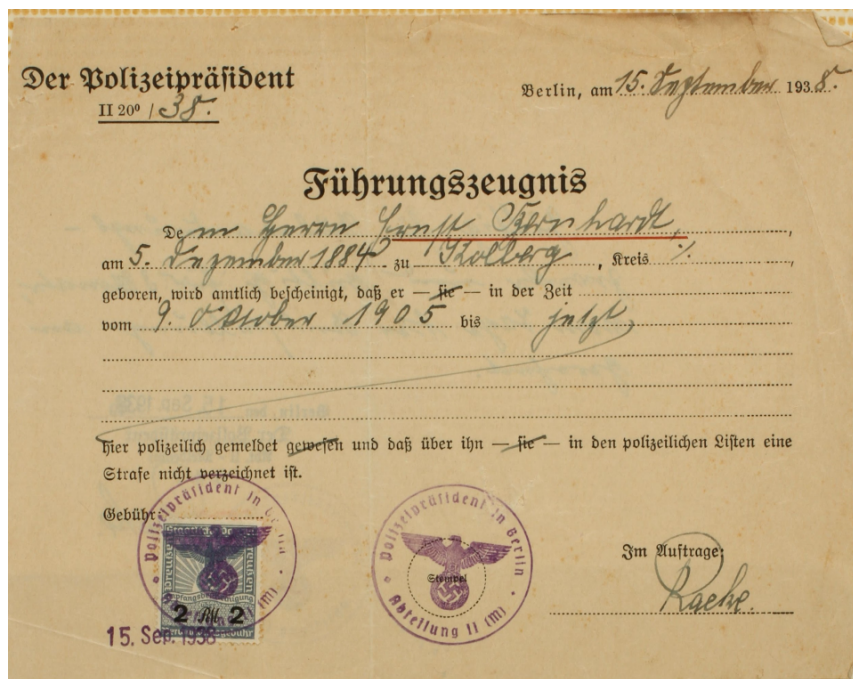 Der Polizeipräsident
II 20⁰ / 38.
Berlin, am 15. September 1938.
Führungszeugnis
Dem Herrn Ernst Bernhardt,
am 5. Dezember 1884 zu Kolberg, Kreis ./.
geboren, wird amtlich bescheinigt, daß er — sie — in der Zeit
vom 9. Oktober 1905 bis jetzt,
hier polizeilich gemeldet gewesen und daß über ihn — sie — in den polizeilichen Listen eine
Strafe nicht verzeichnet ist.
Gebühr:
Polizeipräsident in Berlin
2 RM 2
15. Sep. 1938
Polizeipräsident in Berlin
Stempel
Abteilung II (M)
Im Auftrage: